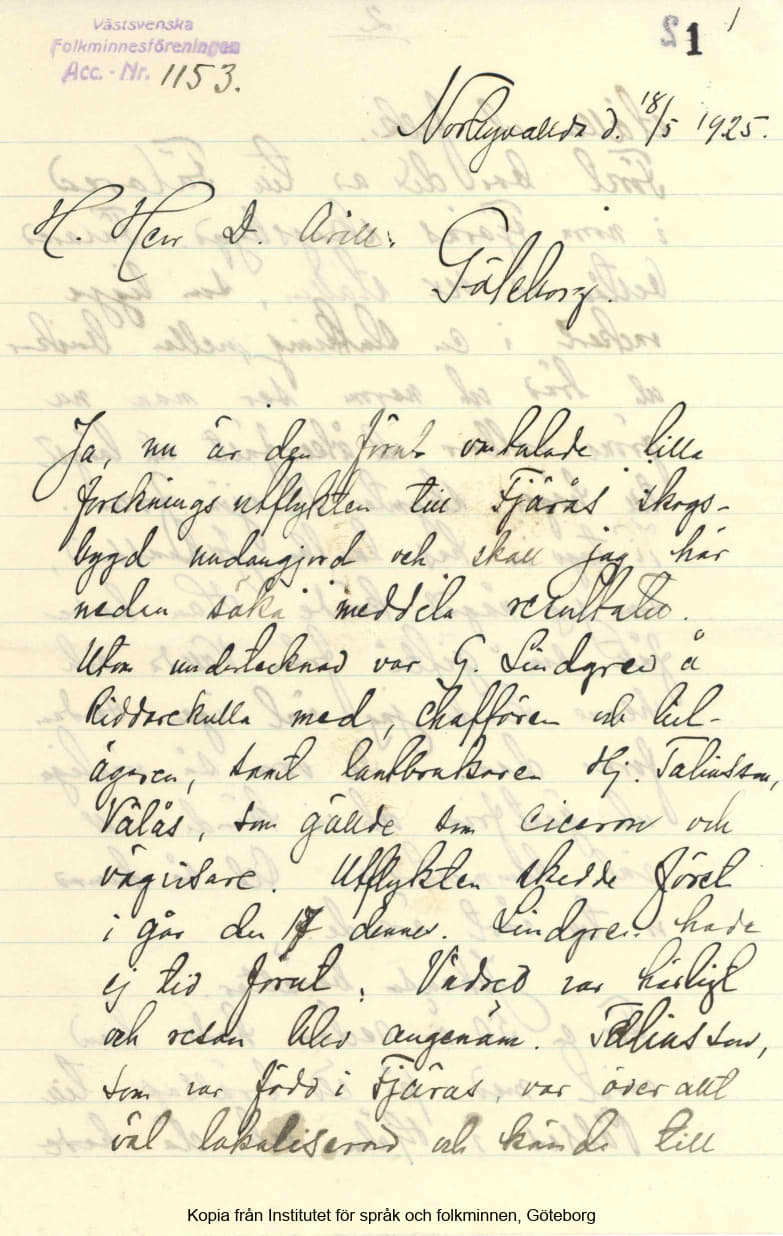 Västsvenska
Folkminnesföreningen
Acc.-Nr. 1153.
1
d. 18/5 1925.
H. Herr D. Arill.
Göteborg.
Ja, nu är den förut omtalade lilla
forsknings utflykten till Fjärås skogs-
bygd undangjord och skall jag här
nedan söka meddela resultatet.
Utom undertecknad var G. Lindgren å
Riddarekulla med, chafför och bil-
ägaren, samt lantbrukaren Hj. Taliusson,
Välås, som gällde som ciceron och
vägvisare. Utflykten skedde först
i går den 17 dennes. Lindgren hade
ej tid förut. Vädret var härligt
och resan blev angenäm. Taliusson,
som var född i Fjärås, var överallt
väl lokaliserad och kände till
Kopia från Institutet för språk och folkminnen, Göteborg